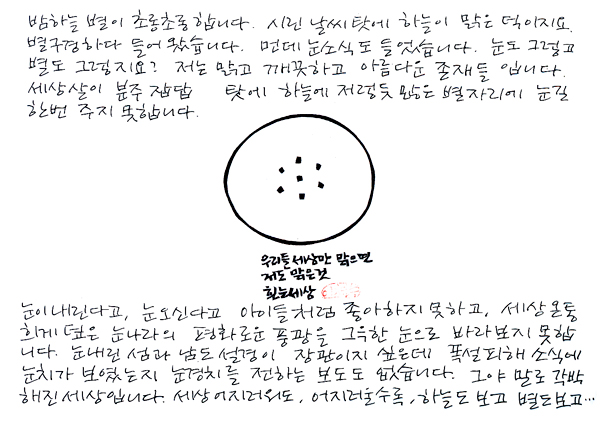 밤하늘 별이 초롱초롱합니다. 시린 날씨 탓에 하늘이 맑은 덕이지요.
별구경하다 들어왔습니다. 먼데 눈소식도 들었습니다. 눈도 그렇고
별도 그렇지요? 저는 맑고 깨끗하고 아름다운 존재들 입니다.
세상살이 분주 잡답 탓에 하늘에 저렇듯 맑은 별자리에 눈길
한번 주지 못합니다.
우리들 세상만 맑으면
저도 맑은것
흰눈세상
눈이내린다고, 눈오신다고 아이들처럼 좋아하지 못하고, 세상 온통
희게 덮은 눈나라의 평화로운 풍광을 그윽한 눈으로 바라보지 못합
니다. 눈내린 섬과 남도 설경이 장관이지 싶은데 폭설피해 소식에
눈치가 보였는지 눈경치를 전하는 보도도 없습니다. 그야 말로 각박
해진 세상입니다. 세상 어지러워도, 어지러울수록, 하늘도 보고 별도보고…